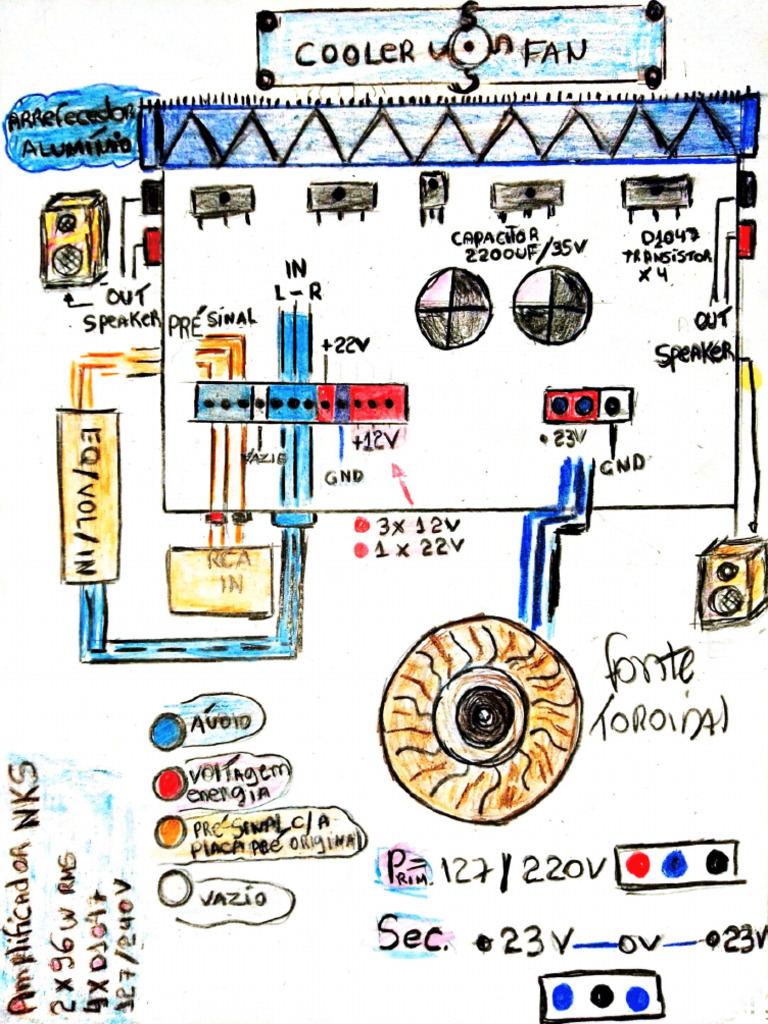 COOLER FAN
ARREFECEDOR
ALUMÍNIO
CAPACITOR
2200UF/35V
D1047
TRANSISTOR
X 4
IN
L-R
OUT
SPEAKER
PRÉ SINAL
+22V
OUT
SPEAKER
EQ/VOL/IN
VAZIO
GND
+12V
23V
GND
3X 12V
1 X 22V
RCA
IN
fonte
TOROIDAL
ÁUDIO
VOLTAGEM
ENERGIA
PRÉ-SINAL C/A
PLACA PRÉ ORIGINAL
VAZIO
Amplificador NKS
2 X 96 W RMS
4 X D1047
127/240V
PRIM.= 127/220V
Sec. 23V—0V—23V